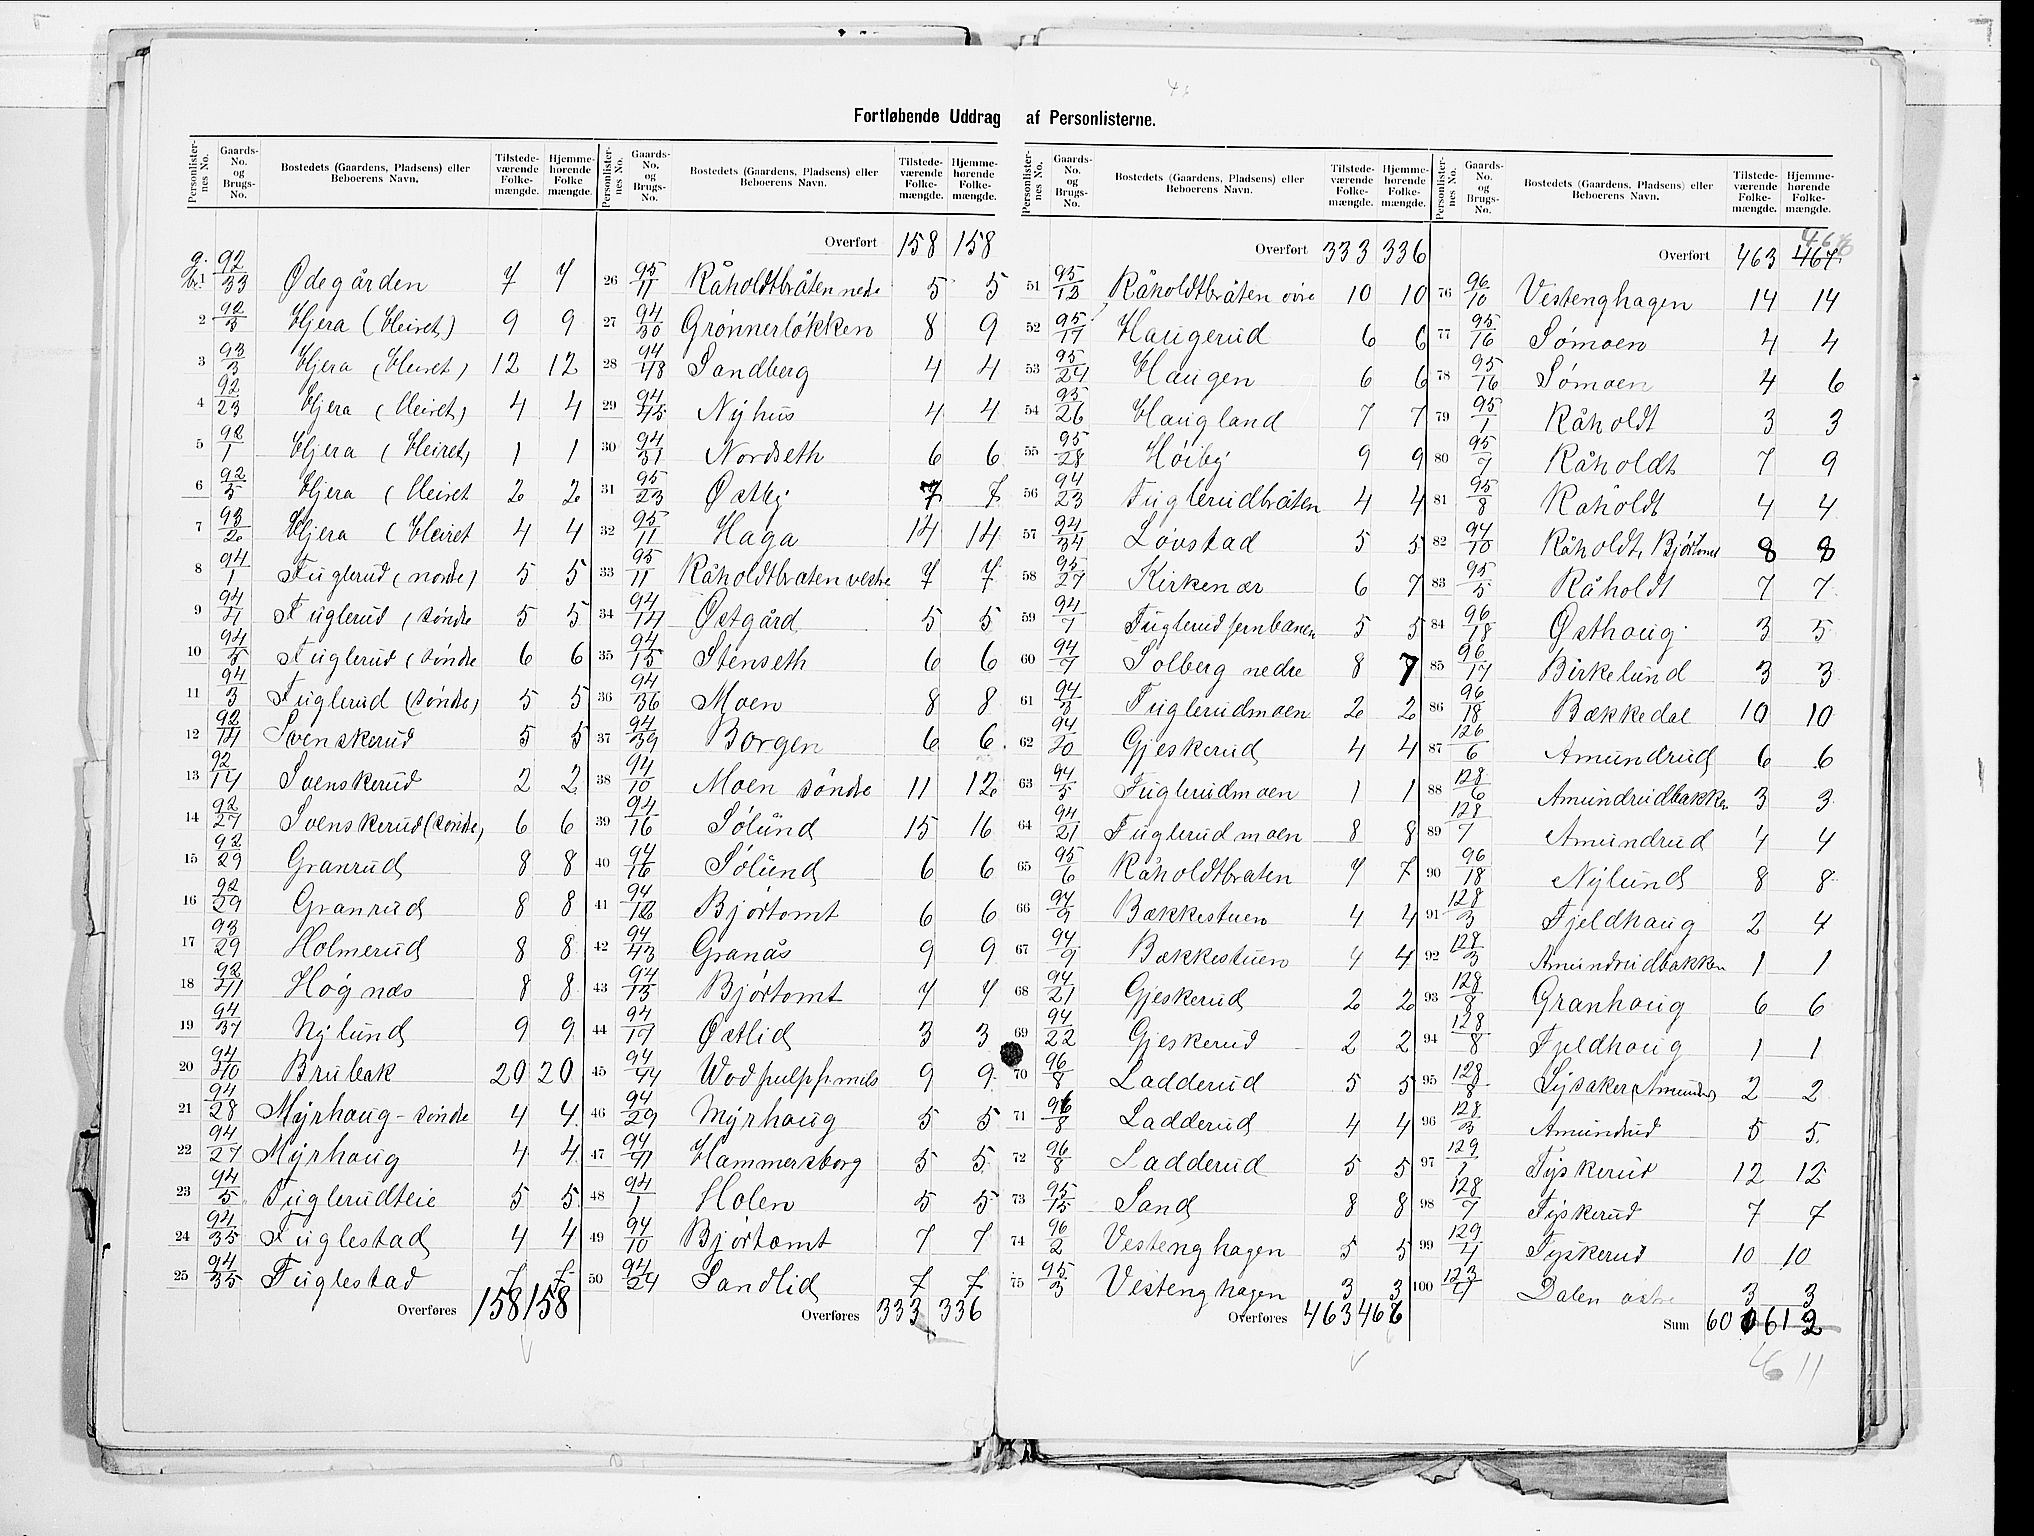 Fortløbende Uddrag af Personlisterne.
Personlister-nes No. Gaards-No. og Brugs-No. Bostedets (Gaardens, Pladsens) eller Beboerens Navn. Tilstede-værende Folke-mængde. Hjemme-hørende Folke mængde.
g. br. 1 92/33 Ødegården 7 7
2 92/3 Hjera (Heiret) 9 9
3 93/3 Hjera (Heiret) 12 12
4 92/23 Hjera (Heiret) 4 4
5 92/1 Hjera (Heiret) 1 1
6 92/5 Hjera (Heiret 2 2
7 93/2 Hjera (Heiret 4 4
8 94/1 Fuglerud (nordre) 5 5
9 94/4 Fuglerud (søndre 5 5
10 94/5 Fuglerud (søndre 6 6
11 94/3 Fuglerud (søndre) 5 5
12 92/14 Svenskerud 5 5
13 92/14 Svenskerud 2 2
14 92/27 Svenskerud (søndre) 6 6
15 92/29 Granrud 8 8
16 92/29 Granrud 8 8
17 93/29 Holmerud 8 8
18 92/41 Høgnæs 8 8
19 94/37 Nylund 9 9
20 94/40 Brubak 20 20
21 94/28 Myrhaug - søndre 4 4
22 94/27 Myrhaug 4 4
23 94/5 Fuglerudteie 5 5
24 94/35 Fuglestad 4 4
25 94/35 Fuglestad 7 7
Overføres 158 158
Personlister-nes No. Gaards-No. og Brugs-No. Bostedets (Gaardens, Pladsens) eller Beboerens Navn. Tilstede-værende Folke-mængde. Hjemme-hørende Folke-mængde.
Overført 158 158
26 95/11 Råholdtbråten nedre 5 5
27 94/30 Grønnerløkken 8 9
28 94/48 Sandberg 4 4
29 94/45 Nyhus 4 4
30 94/31 Nordseth 6 6
31 95/23 Østby 7 7
32 95/11 Haga 14 14
33 95/11 Råholdtbråten vestre 7 7
34 94/14 Østgård 5 5
35 94/15 Stenseth 6 6
36 94/36 Moen 8 8
37 94/39 Borgen 6 6
38 94/10 Moen søndre 11 12
39 94/16 Sølund 15 16
40 94/16 Sølund 6 6
41 94/12 Bjørtomt 6 6
42 94/43 Granås 9 9
43 94/13 Bjørtomt 7 7
44 94/17 Østlid 3 3
45 94/44 Wodpulpfmils 9 9
46 94/29 Myrhaug 5 5
47 94/41 Hammersborg 5 5
48 94/1 Holen 5 5
49 94/10 Bjørtomt 7 7
50 94/24 Sandlid 7 7
Overføres 333 336
Personlister-nes No. Gaards-No. og Brugs-No. Bostedets (Gaardens, Pladsens) eller Beboerens Navn. Tilstede-værende Folke-mængde. Hjemme-hørende Folke-mængde.
Overført 333 336
51 95/13 Råholdtbråten øvre 10 10
52 95/17 Haugerud 6 6
53 95/24 Haugen 6 6
54 95/26 Haugland 7 7
55 95/28 Høiby 9 9
56 94/23 Fuglerudbråten 4 4
57 94/34 Løvstad 5 5
58 95/27 Kirkenær 6 7
59 94/7 Fuglerud jernbanen 5 5
60 94/7 Solberg nedre 8 7
61 94/3 Fuglerudmoen 2 2
62 94/20 Gjeskerud 4 4
63 94/5 Fuglerudmoen 1 1
64 94/21 Fuglerudmoen 8 8
65 95/6 Råholdtbråten 7 7
66 94/9 Bækkestuen 4 4
67 94/9 Bækkestuen 4 4
68 94/21 Gjeskerud 2 2
69 94/22 Gjeskerud 2 2
70 96/8 Ladderud 5 5
71 96/8 Ladderud 4 4
72 96/8 Ladderud 5 5
73 95/15 Sand 8 8
74 96/2 Vestenghagen 5 5
75 95/3 Vestenghagen 3 3
Overføres 463 466
Personlister-nes No. Gaards-No. og Brugs-No. Bostedets (Gaardens, Pladsens) eller Beboerens Navn. Tilstede-værende Folke-mængde. Hjemme-hørende Folke-mængde.
466
Overført 463 467
76 96/10 Vestenghagen 14 14
77 95/16 Sømoen 4 4
78 95/16 Sømoen 4 6
79 95/1 Råholdt 3 3
80 95/7 Råholdt 7 9
81 95/8 Råholdt 4 4
82 94/10 Råholdt, Bjørtomt 8 8
83 95/5 Råholdt 7 7
84 96/18 Østhaug 3 5
85 96/17 Birkelund 3 3
86 96/18 Bækkedal 10 10
87 126/6 Amundrud 6 6
88 128/6 Amundrudbakken 3 3
89 128/7 Amundrud 4 4
90 96/18 Nylund 8 8
91 128/3 Fjeldhaug 2 4
92 128/3 Amundrudbakken 1 1
93 128/8 Granhaug 6 6
94 128/8 Fjeldhaug 1 1
95 128/8 Lysaker (Amundrud) 2 2
96 128/3 Amundrud 5 5
97 129/1 Tyskerud 12 12
98 128/7 Tyskerud 7 7
99 129/4 Tyskerud 10 10
100 123/4 Dalen østre 3 3
Sum 600 612
611